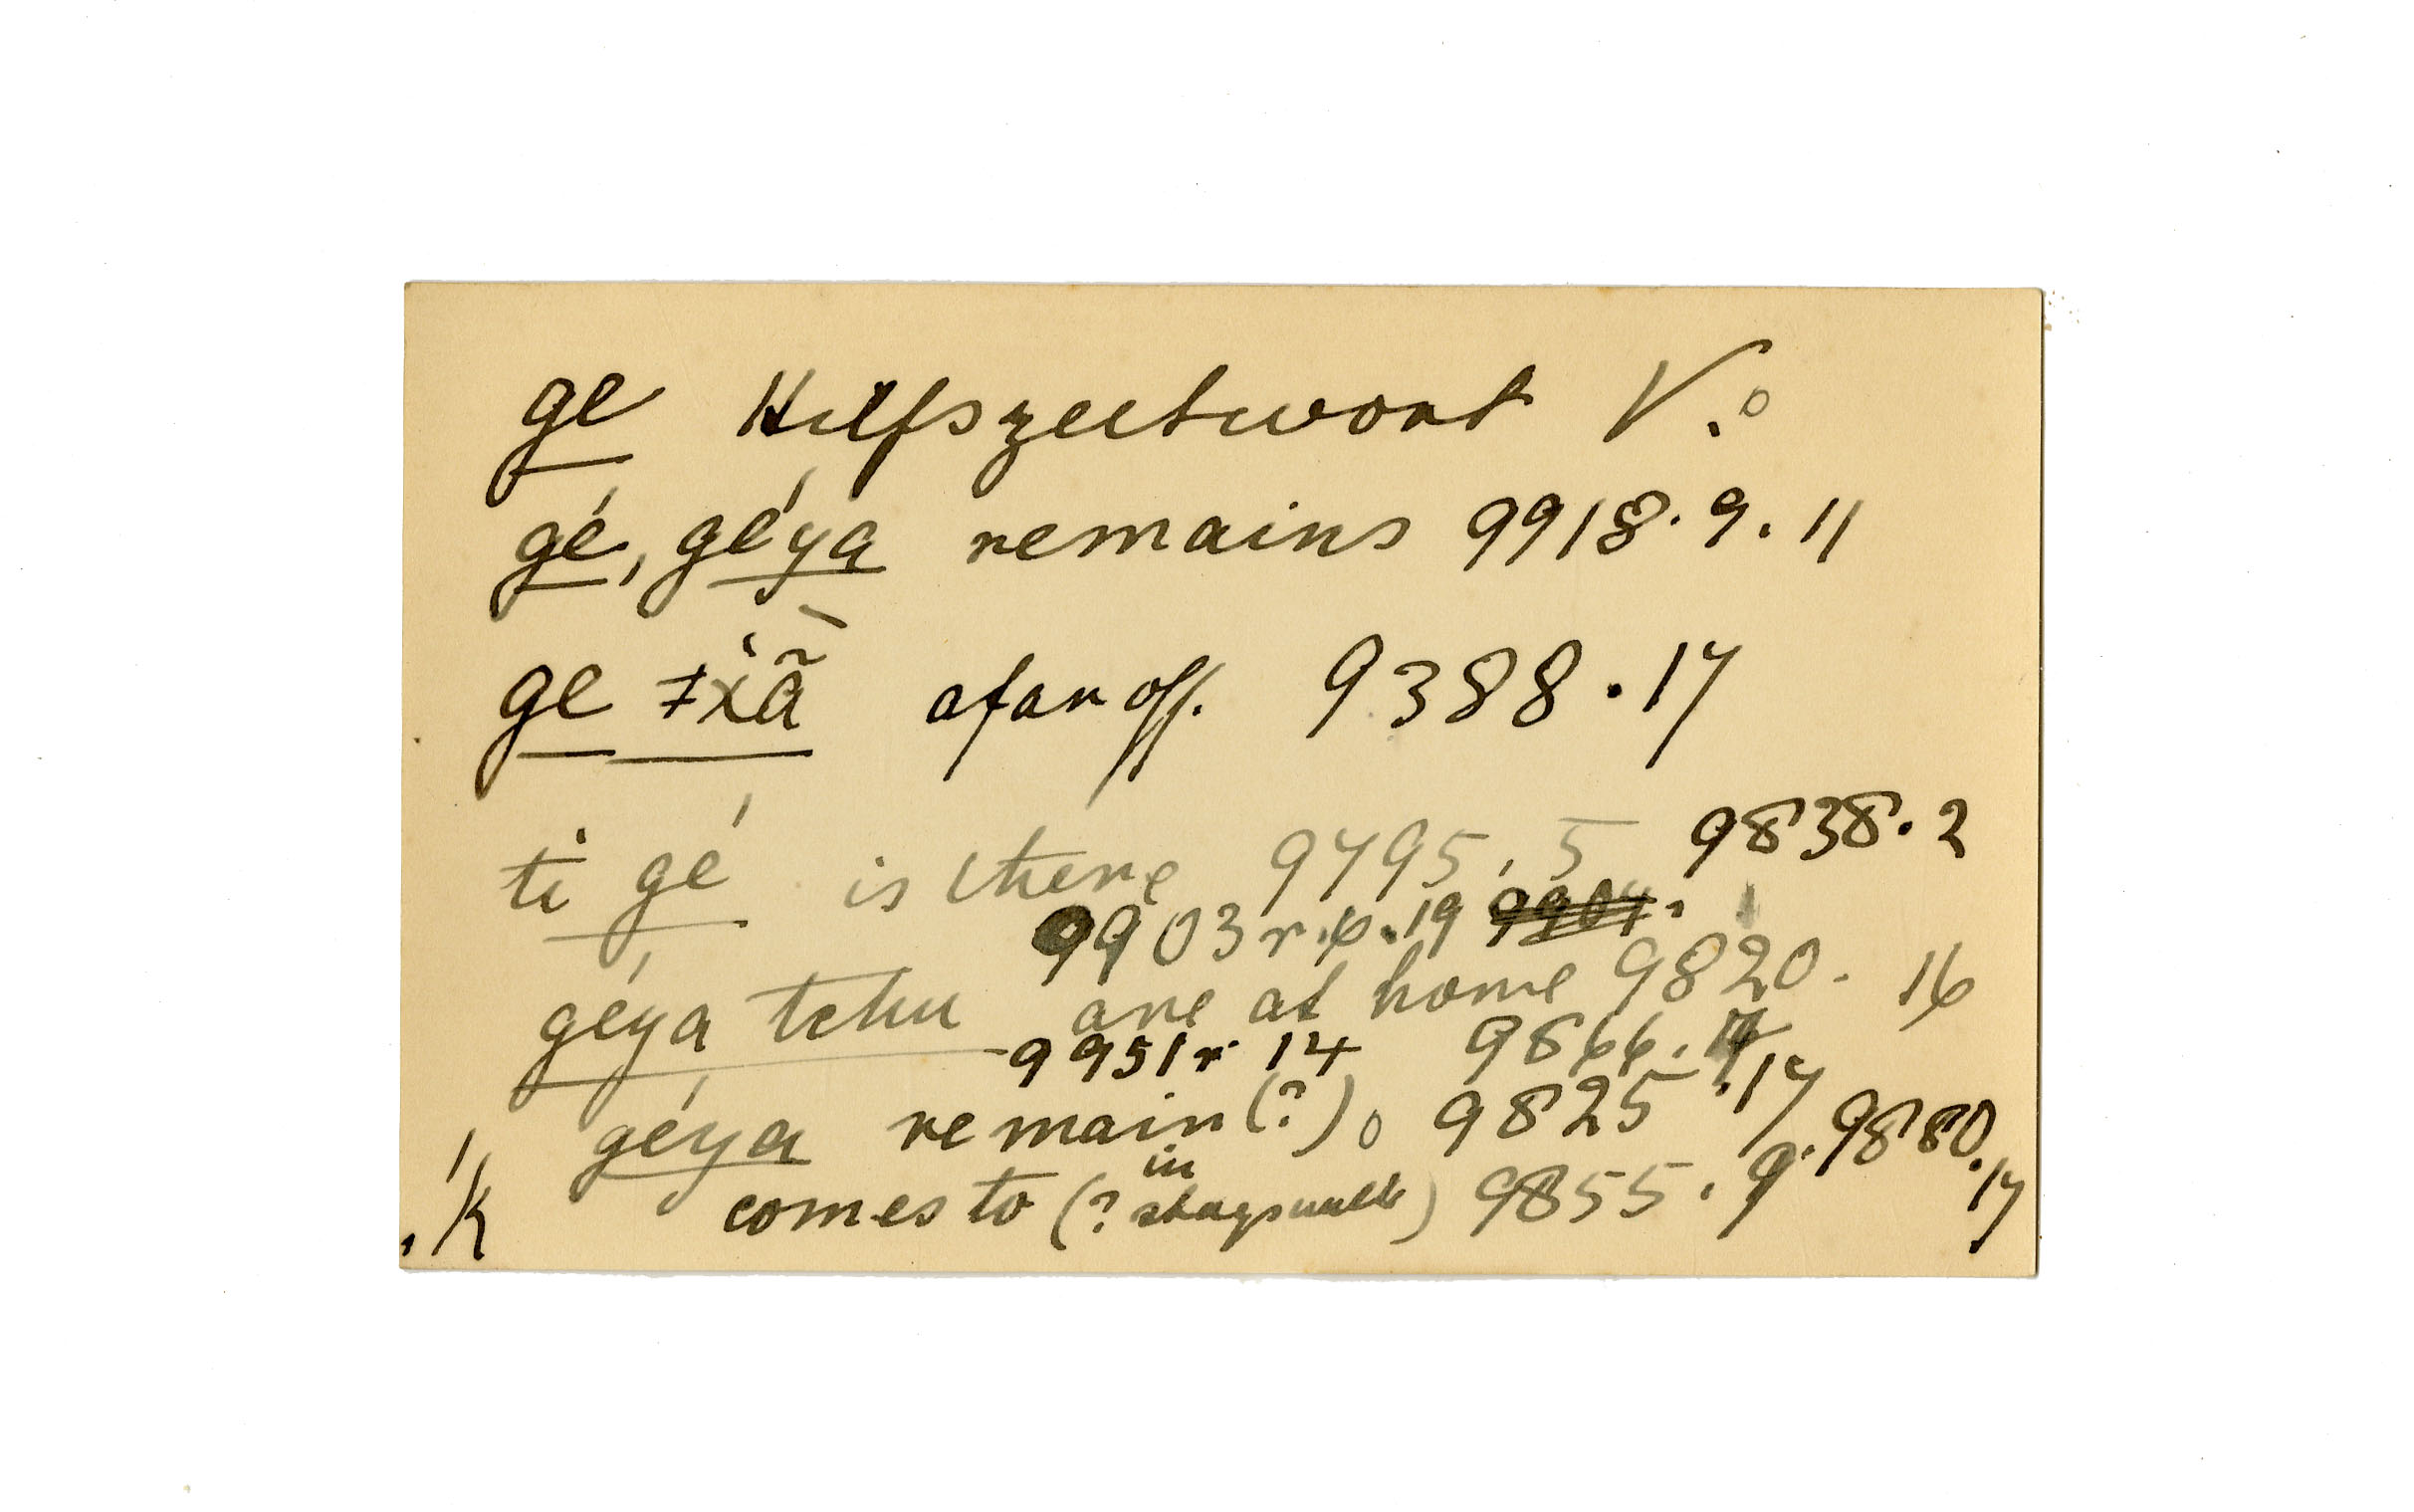 ge Hilfszeitwort V.o
gé, géya remains 9918.9.11
ge ǂxã̀ afar off. 9388.17
ti gé is there 9795.5 9838.2
9903r.6.19 9904.
géya tchu are at home 9820.16
9951r 14 9866.
géya remain (?)o 9825.17 9880.17
K comes to (? in) 9855.9.